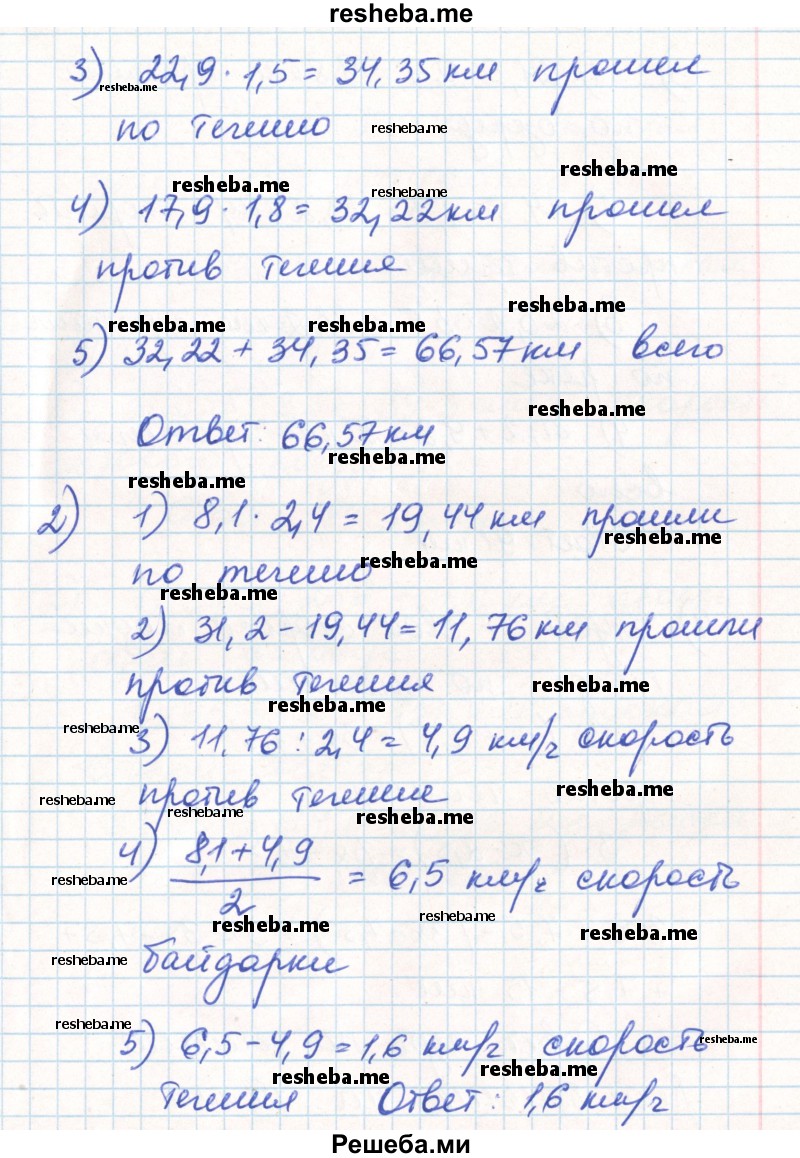 resheba.me
3) 22,9 · 1,5 = 34,35 км прошел
resheba.me
по течению resheba.me
resheba.me
resheba.me resheba.me
4) 17,9 · 1,8 = 32,22 км прошел
против течения
resheba.me
resheba.me resheba.me
5) 32,22 + 34,35 = 66,57 км всего
resheba.me
Ответ: 66,57 км
resheba.me
resheba.me
2) 1) 8,1 · 2,4 = 19,44 км прошли
resheba.me
resheba.me
по течению
resheba.me
2) 31,2 - 19,44 = 11,76 км прошли
против течения resheba.me
resheba.me
resheba.me
3) 11,76 : 2,4 = 4,9 км/ч скорость
resheba.me против течения resheba.me
resheba.me
resheba.me
4) 8,1 + 4,9
resheba.me 2 = 6,5 км/ч скорость
resheba.me resheba.me
resheba.me
resheba.me байдарки
resheba.me
5) 6,5 - 4,9 = 1,6 км/ч скорость resheba.me
resheba.me resheba.me
течения Ответ: 1,6 км/ч
Решеба.ми